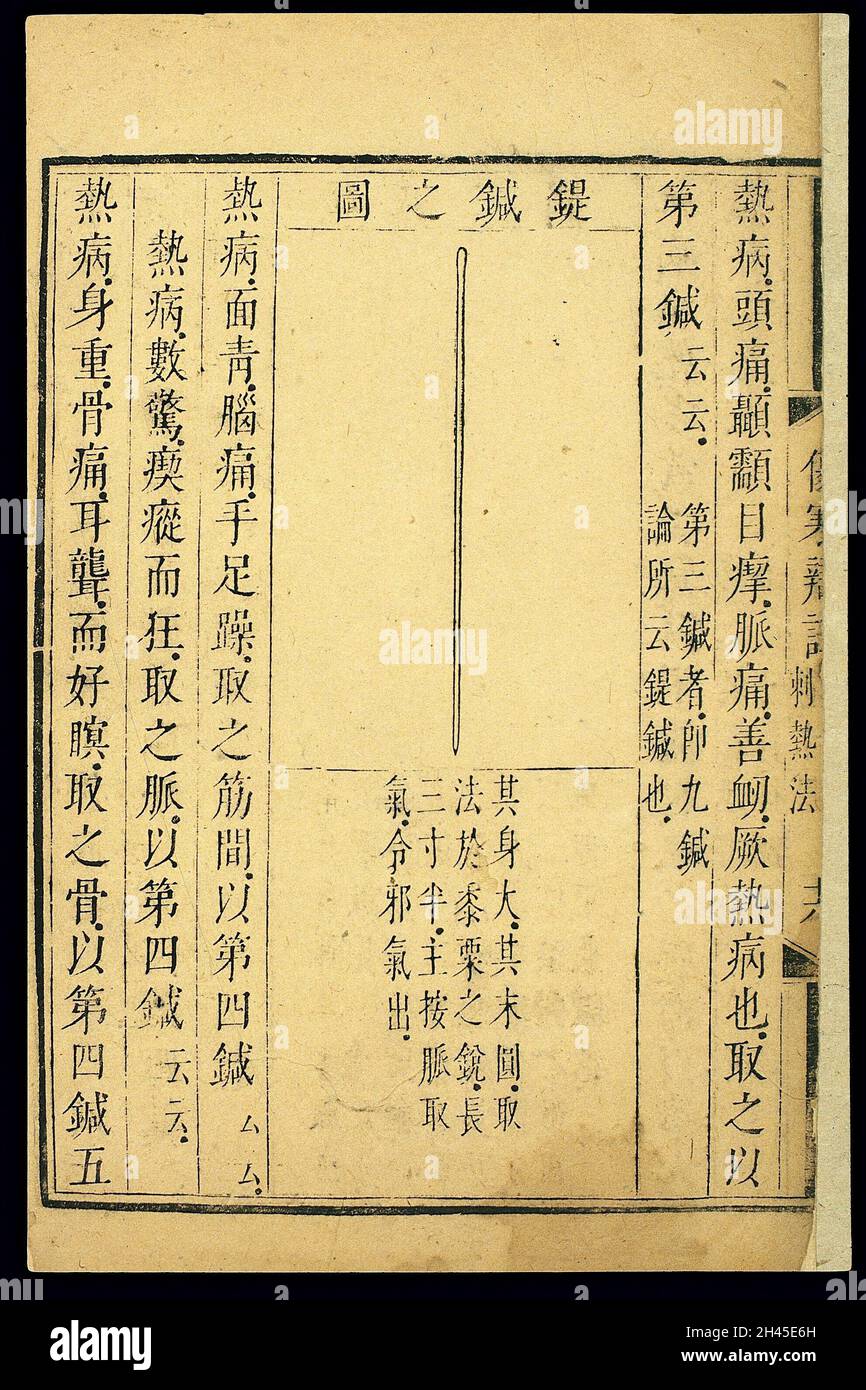 刺熱法
熱病.頭痛.顳顬目瘈.脈痛.善衄.厥熱病也.取之以
第三鍼云云.
第三鍼者.卽九鍼
論所云鍉鍼也.
鍉鍼之圖
其身大.其末圓.取
法於黍粟之銳.長
三寸半.主按脈取
氣.令邪氣出.
熱病.面靑.腦痛.手足躁.取之筋間.以第四鍼厶厶.
熱病.數驚.瘈瘲而狂.取之脈.以第四鍼云云.
熱病.身重.骨痛.耳聾.而好瞑.取之骨.以第四鍼五
alamy
alamy
Image ID: 2H45E6H
www.alamy.com